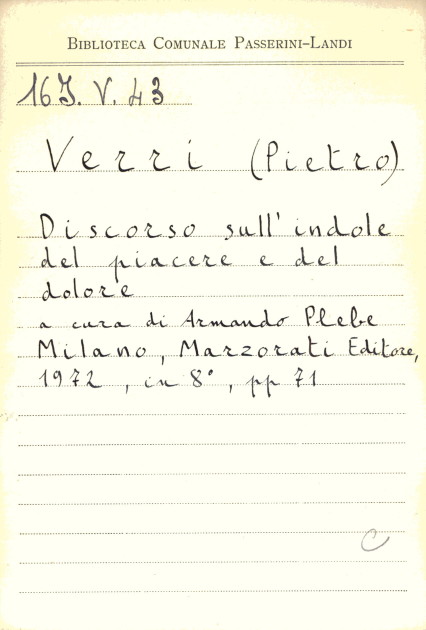 BIBLIOTECA COMUNALE PASSERINI-LANDI
16 J. V. 43
Verri (Pietro)
Discorso sull'indole
del piacere e del
dolore
a cura di Armando Plebe
Milano, Marzorati Editore,
1972, in 8°, pp 71
C